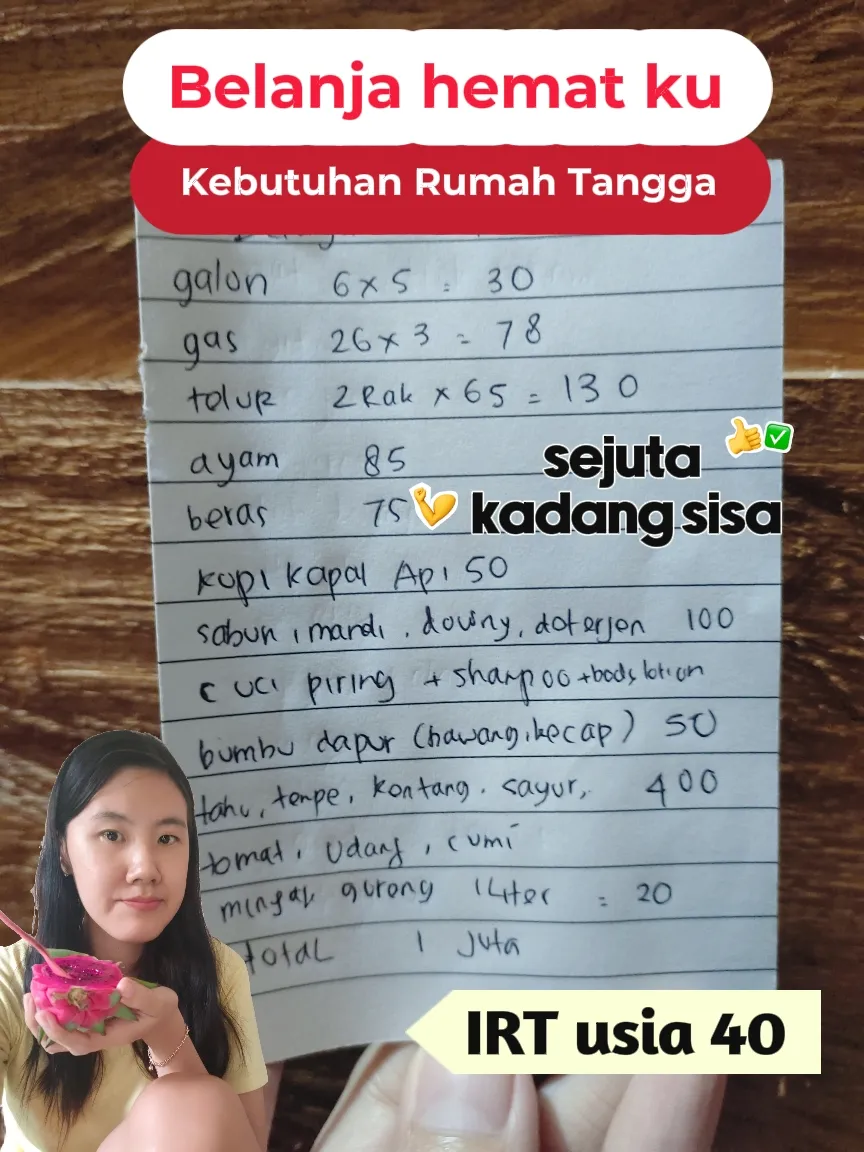 Belanja hemat ku
Kebutuhan Rumah Tangga
galon 6 x 5 = 30
gas 26 x 3 = 78
tolur 2 Rak x 65 = 130
ayam 85
beras 75
sejuta
kadang sisa
Kopi Kapal Api 50
sabun, mandi, downy, doterjen 100
cuci piring + shampoo + body lotion
bumbu dapur (bawang, kecap) 50
tahu, tempe, kontang, sayur, 400
tomat, udang, cumi
minyak gorong 1 Liter = 20
total 1 juta
IRT usia 40